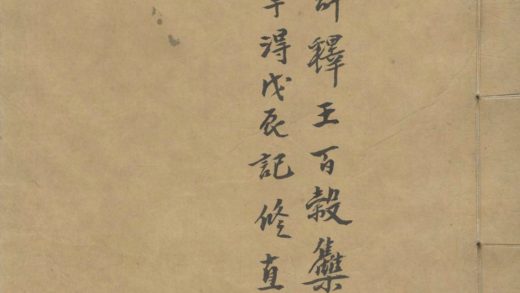 釋王百穀雧
得戊辰記修直